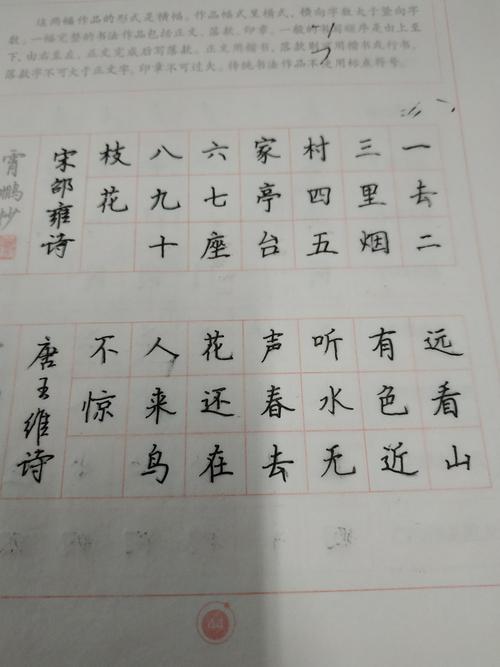 这两幅作品的形式是横幅。作品幅式呈横式，横向字数大于竖向字
数。一幅完整的书法作品包括正文、落款、印章。一般的书写顺序是由上至
下，由右至左，正文完成后写落款。正文用楷书，落款则可用楷书或行书，
落款字不可大于正文字，印章不可过大。传统书法作品不使用标点符号。
一去二
三里烟
村四五
家亭台
六七座
八九十
枝花
宋邵雍诗
霄鹏抄
远看山
有色近
听水无
声春去
花还在
人来鸟
不惊
唐王维诗
44